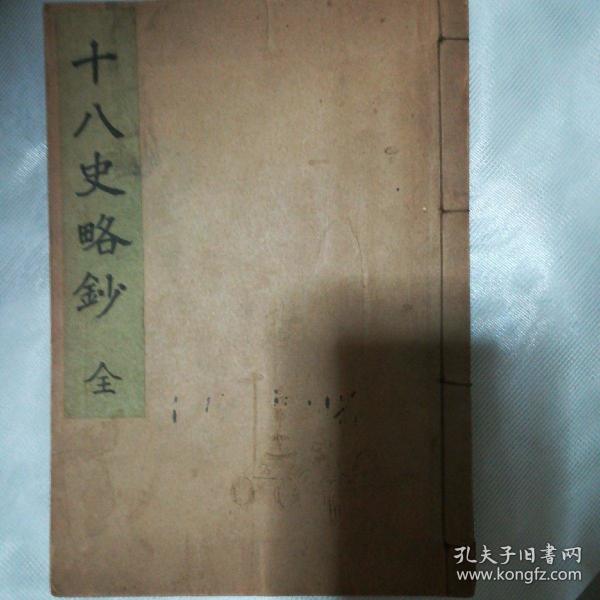 十八史略鈔 全
孔夫子旧書网
www.kongfz.com